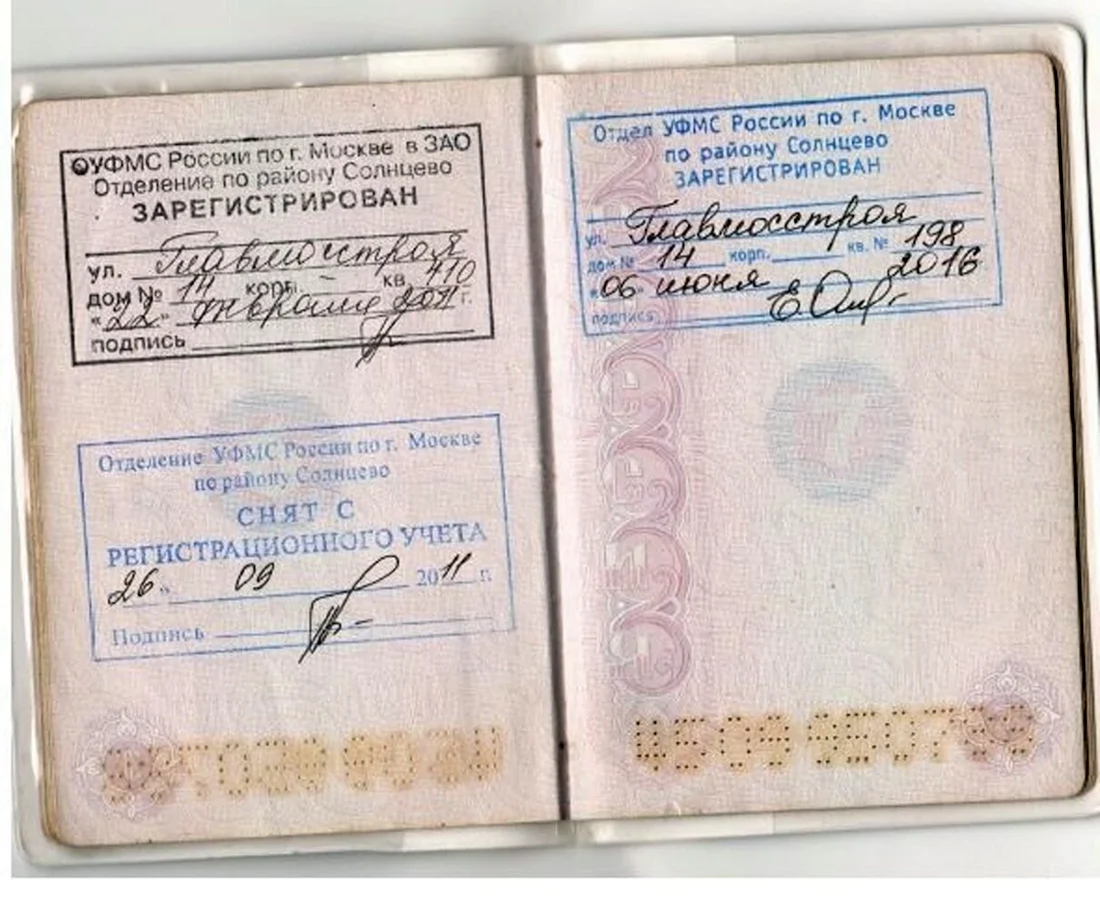 УФМС России по г. Москве в ЗАО
Отделение по району Солнцево
ЗАРЕГИСТРИРОВАН
ул. Главмосстроя
дом № 14 корп. – кв. 410
"22" февраля 2011 г.
подпись
Отделение УФМС России по г. Москве
по району Солнцево
СНЯТ С
РЕГИСТРАЦИОННОГО УЧЕТА
26 " 09 2011 г.
Подпись
Отдел УФМС России по г. Москве
по району Солнцево
ЗАРЕГИСТРИРОВАН
ул. Главмосстроя
дом № 14 корп. кв. № 198
"06 июня 2016
подпись